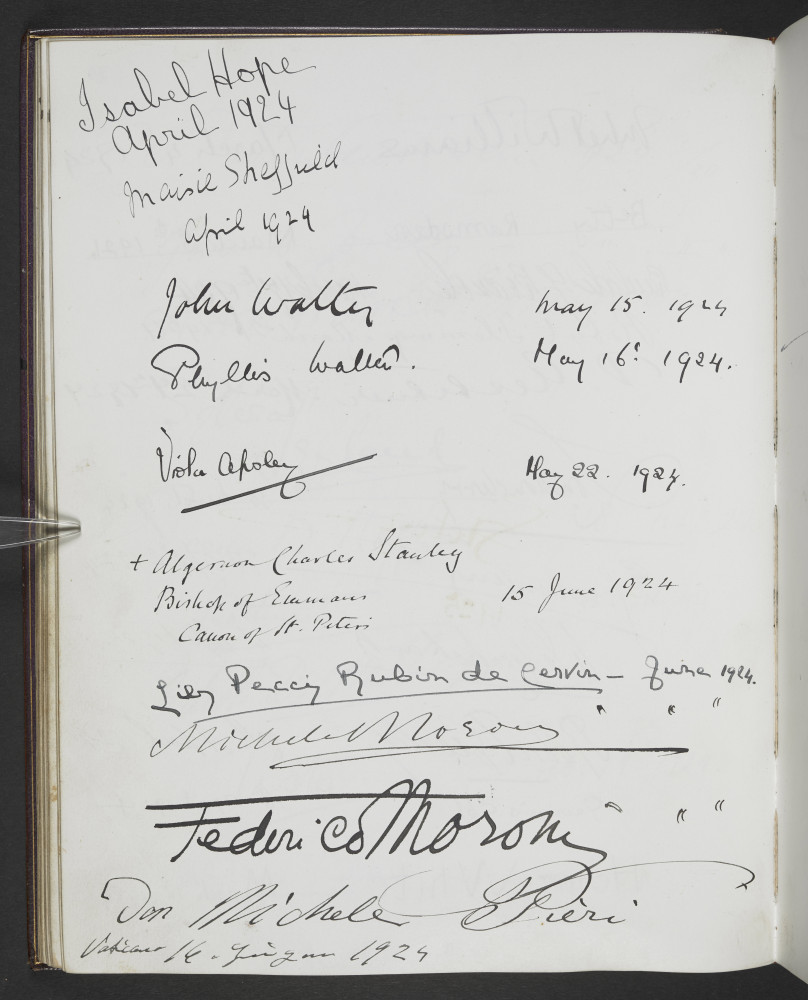 Isabel Hope
April 1924
Maisie Sheffield
April 1924
John Walter May 15. 1924
Phyllis Walter. May 16th 1924.
Viola Apsley May 22. 1924.
+ Algernon Charles Stanley
Bishop of Emmaus 15 June 1924
Canon of St. Peter's
Lily Pecci Rubin de Cervin - June 1924.
Michele Moroni " " "
Federico Moroni " " "
Don Michele Pieri
Vaticano 16. Giugno 1924